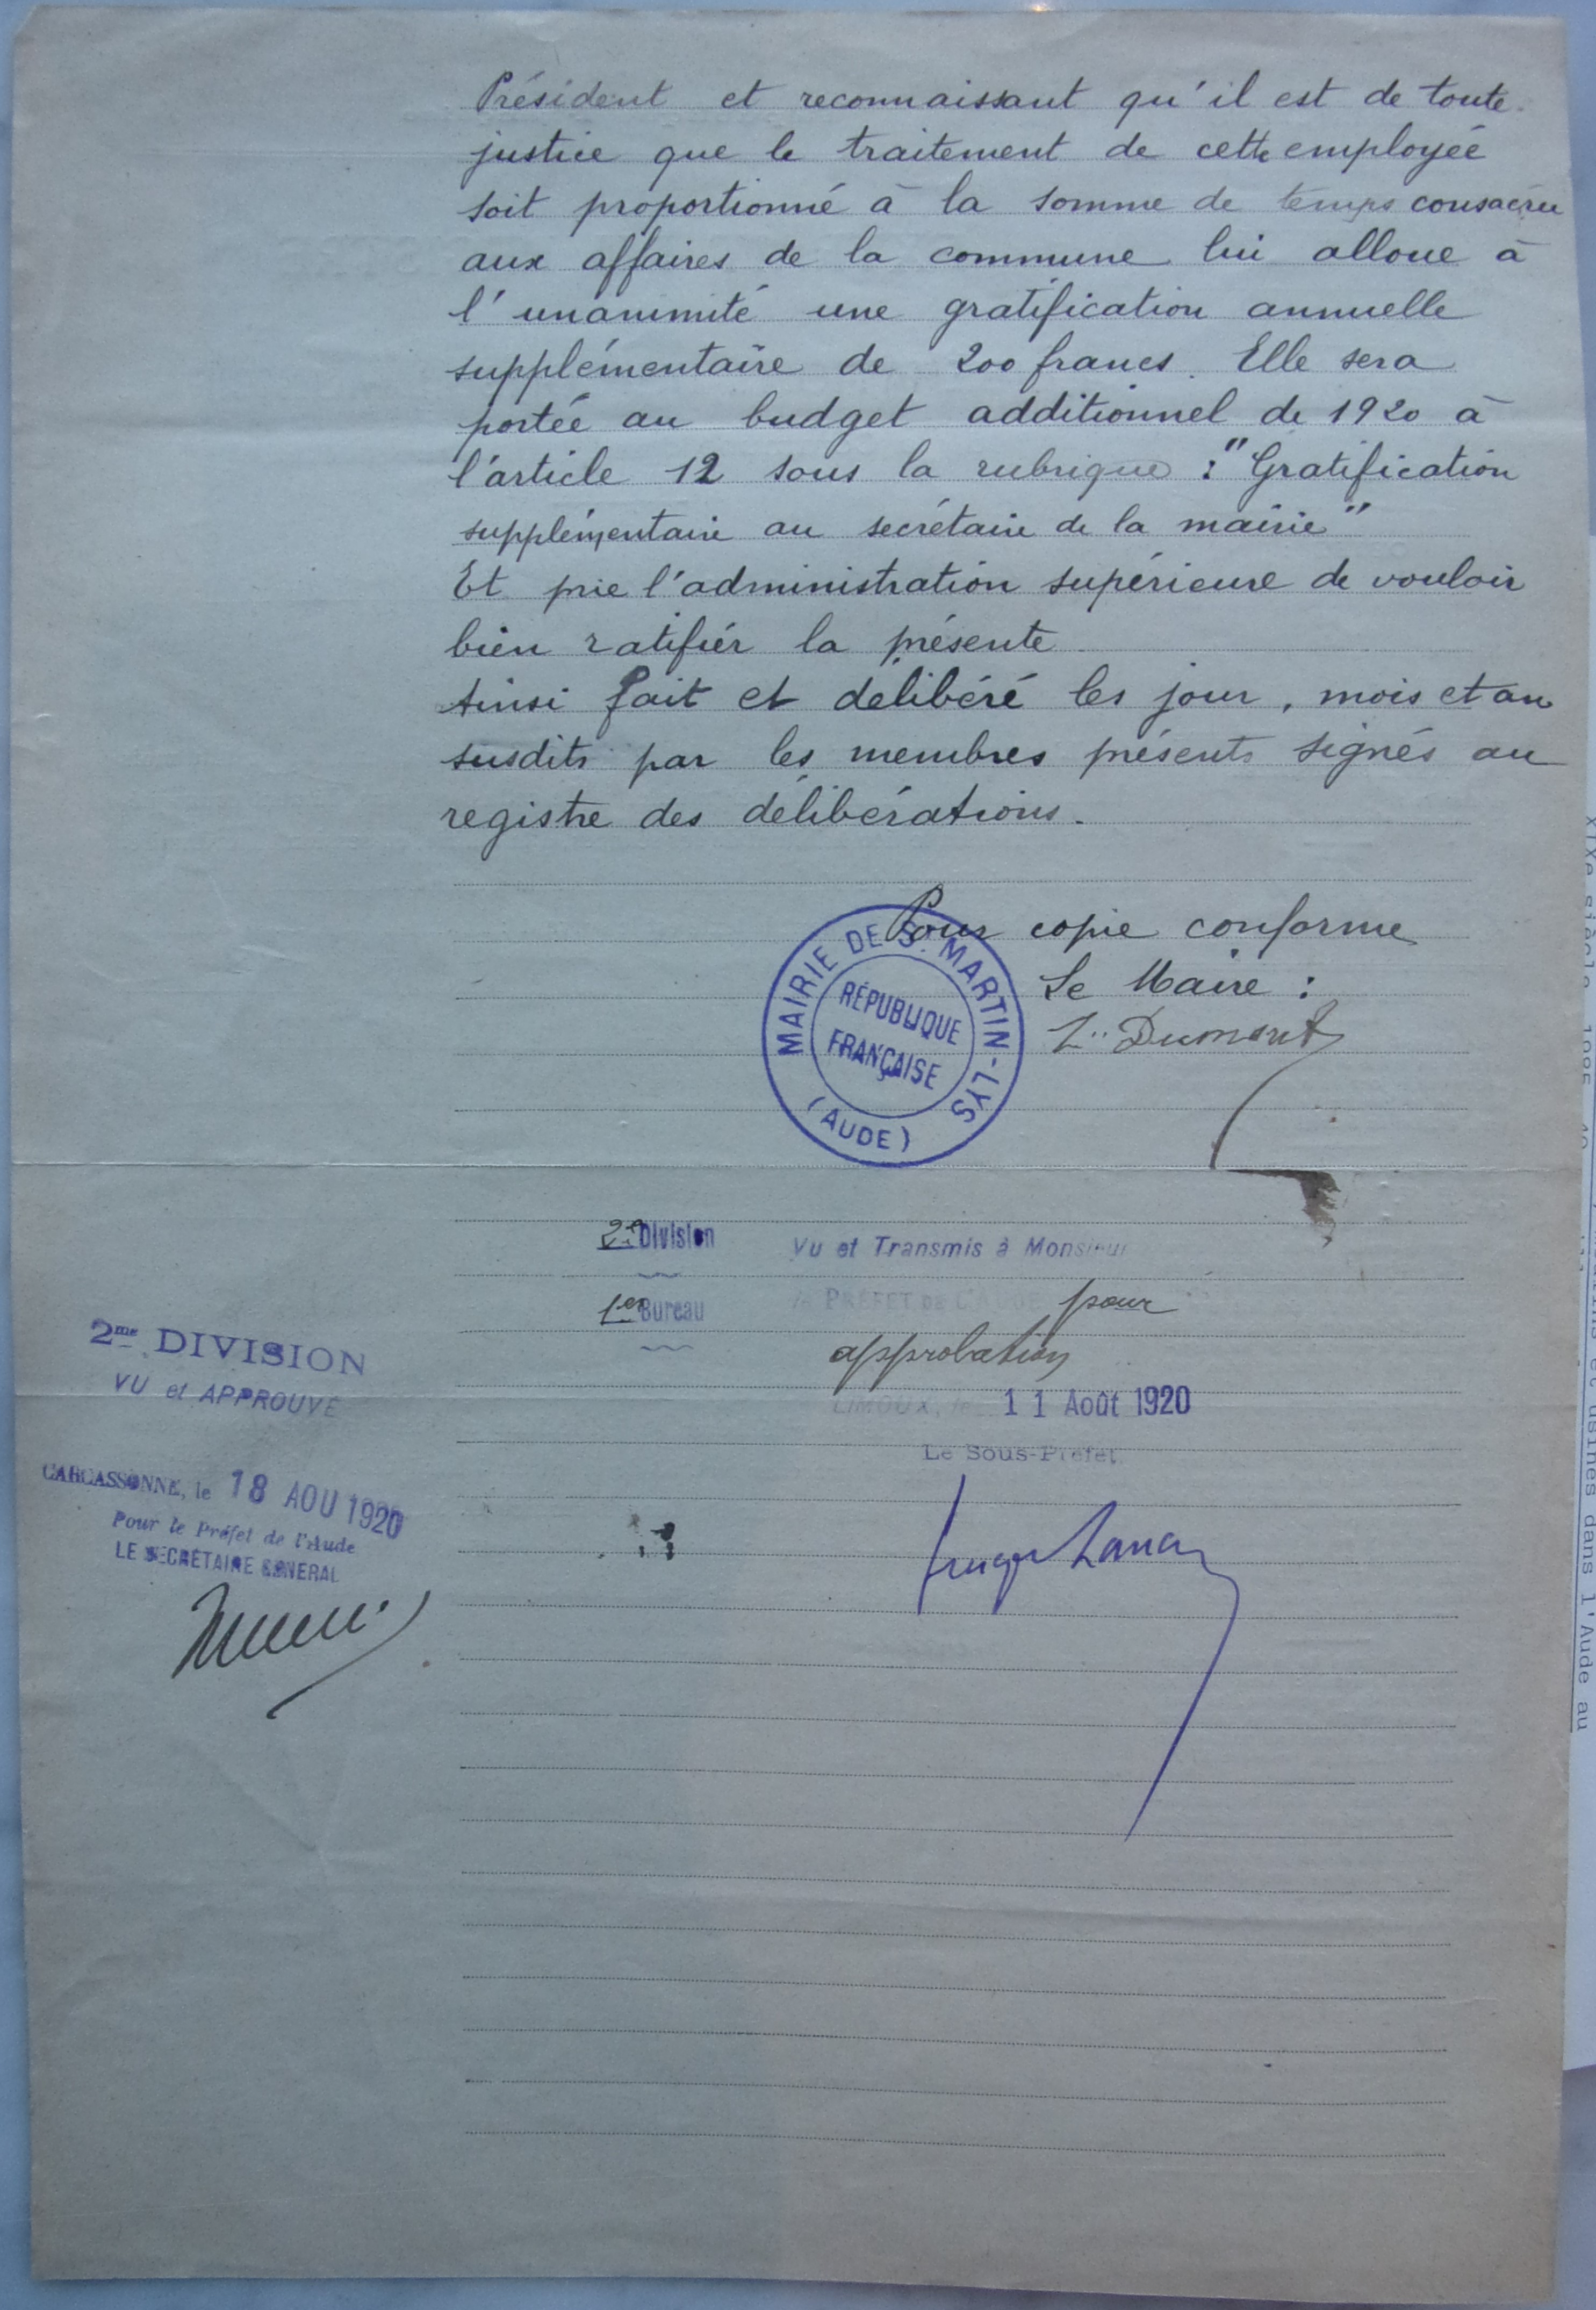 Président et reconnaissant qu'il est de toute
justice que le traitement de cette employée
soit proportionné à la somme de temps consacrée
aux affaires de la commune lui alloue à
l'unanimité une gratification annuelle
supplémentaire de 200 francs. Elle sera
portée au budget additionnel de 1920 à
l'article 12 sous la rubrique : "Gratification
supplémentaire au secrétaire de la mairie"
Et prie l'administration supérieure de vouloir
bien ratifier la présente
Ainsi fait et délibéré les jour, mois et an
susdits par les membres présents signés au
registre des délibérations.
Pour copie conforme
Le Maire :
Dumont
MAIRIE DE St. MARTIN-LYS
(AUDE)
RÉPUBLIQUE
FRANÇAISE
2e Division
1er Bureau
Vu et Transmis à Monsieur
le PRÉFET DE L'AUDE pour
approbation
LIMOUX, le 11 Août 1920
Le Sous-Préfet
2me DIVISION
VU et APPROUVÉ
CARCASSONNE, le 18 AOU 1920
Pour le Préfet de l'Aude
LE SECRÉTAIRE GÉNÉRAL
usines dans l'Aude au